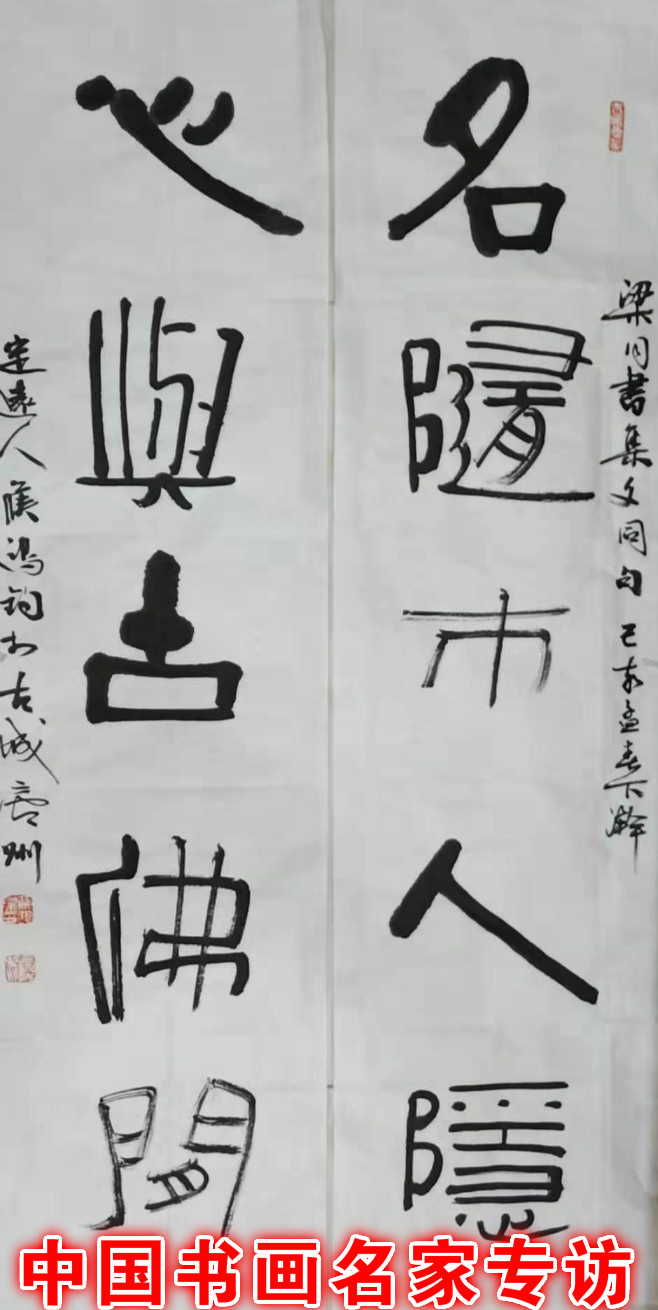 名隨市人隱
心與古佛閒
梁同書集文同句 己亥孟春下澣
定遠人侯鴻鈞於古城亳州
中国书画名家专访